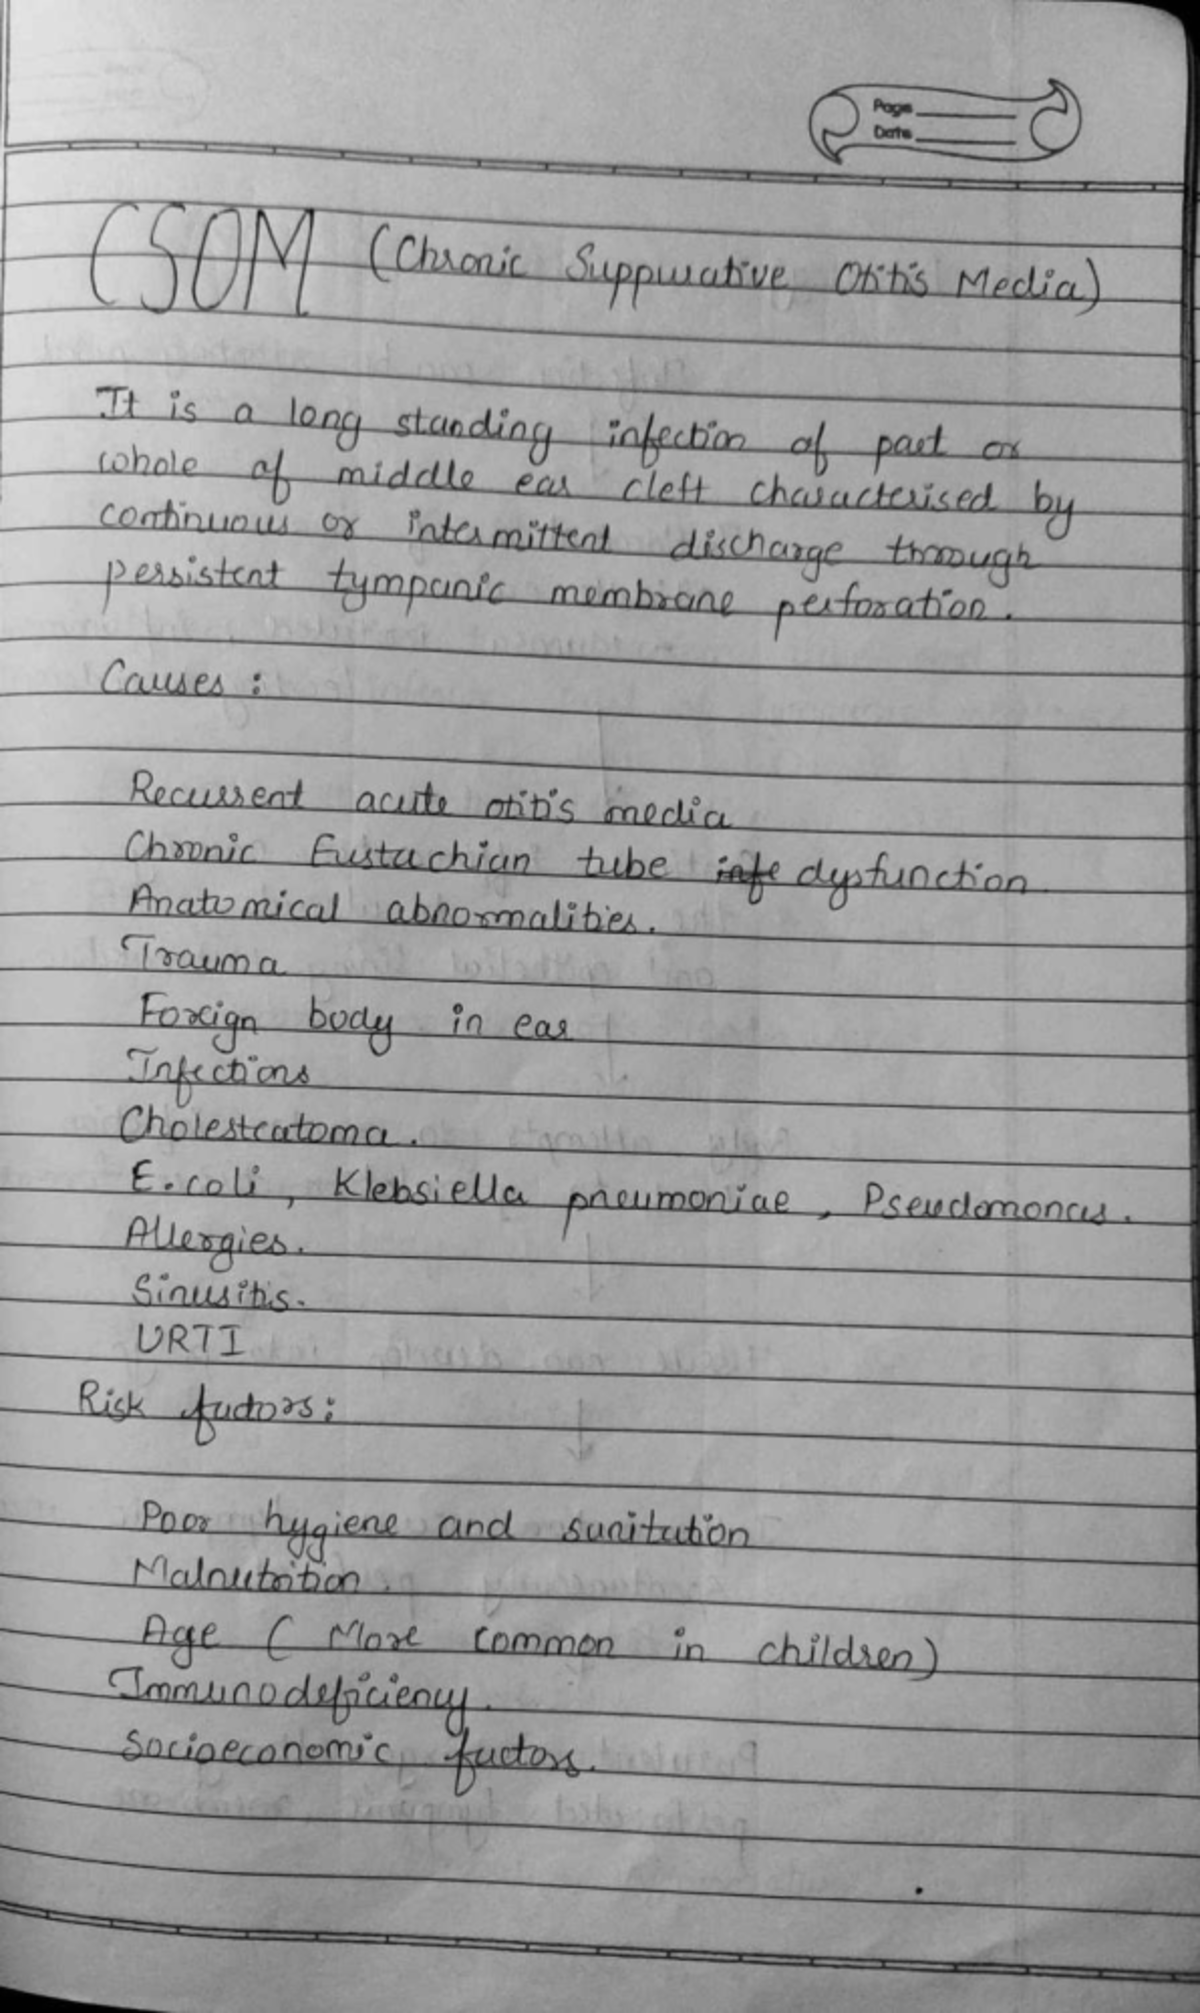 Page
Date
CSOM (Chronic Suppurative Otitis Media)
It is a long standing infection of part or
whole of middle ear cleft characterised by
continuous or intermittent discharge through
persistent tympanic membrane perforation.
Causes :
Recurrent acute otitis media
Chronic Eustachian tube infe dysfunction
Anatomical abnormalities.
Trauma
Foreign body in ear
Infections
Cholesteatoma.
E.coli, Klebsiella pneumoniae, Pseudomonas.
Allergies.
Sinusitis.
URTI
Risk factors:
Poor hygiene and sanitation
Malnutrition.
Age ( More common in children)
Immunodeficiency.
Socioeconomic factors.